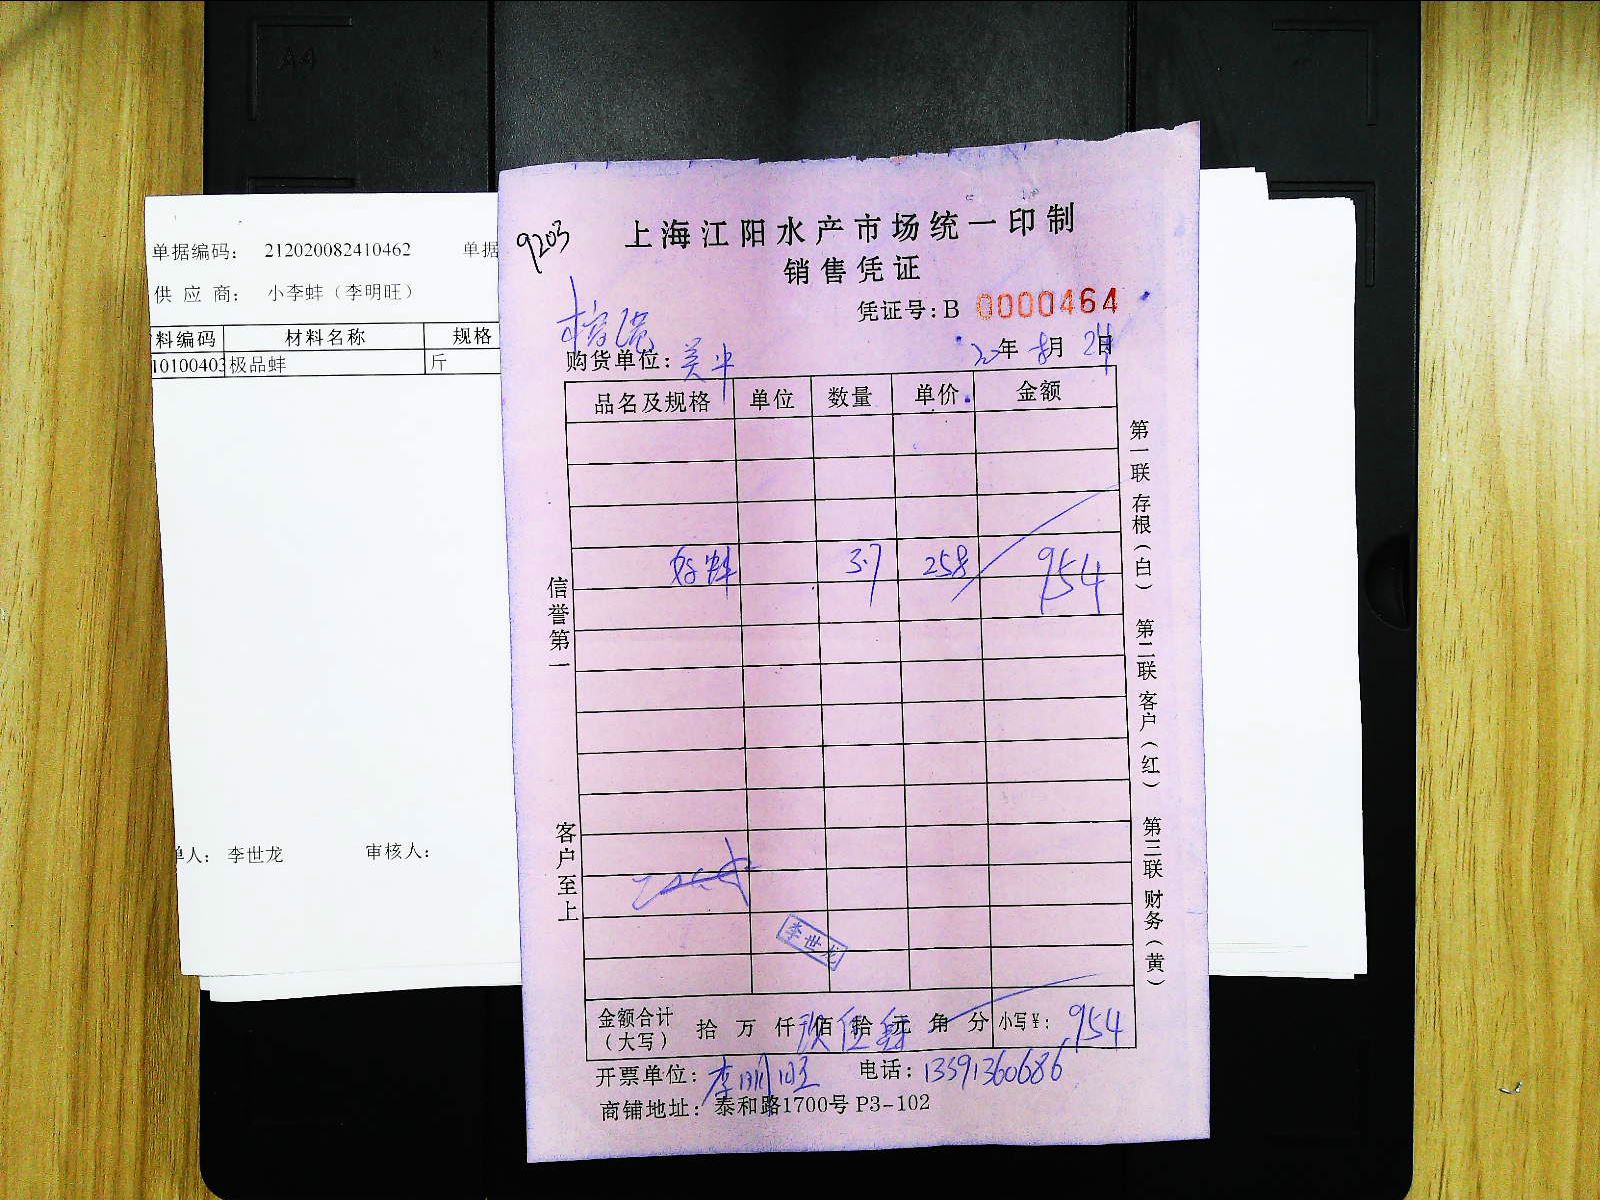 单据编码： 212020082410462 单据
供 应 商： 小李蚌（李明旺）
料编码 材料名称 规格
10100403 极品蚌 斤
单人： 李世龙 审核人：
9203
上海江阳水产市场统一印制
销售凭证
凭证号：B 0000464
购货单位：
20年 8月 24日
品名及规格 单位 数量 单价 金额
好蚌 3.7 258 954
李世龙
金额合计（大写） 拾 万 仟 玖佰 伍拾 肆元 角 分 小写¥： 954
开票单位：李明旺 电话：13391360686
商铺地址：泰和路1700号 P3-102
信誉第一
客户至上
第一联 存根（白） 第二联 客户（红） 第三联 财务（黄）